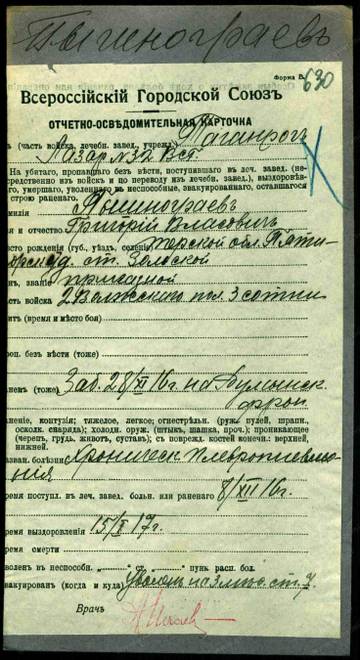 Форма В.
630
Всероссійскій Городской Союзъ
ОТЧЕТНО-ОСВѢДОМИТЕЛЬНАЯ КАРТОЧКА
(часть войска, лечебн. завед., учрежд.) Таганрог
Лазар. №32 В.с.г.
На убитаго, пропавшаго безъ вѣсти, поступившаго въ леч. завед. (не-
средственно изъ войскъ и по переводу изъ лечебн. завед.), выздоровѣв-
шаго, умершаго, уволеннаго въ неспособные, эвакуированнаго, оставшагося
строю раненаго.
милія
я и отчество Григорій Власовичъ
сто рожденія (губ., уѣзд., селеніе) Терской обл. Пяти-
ст. Зольской
званіе приказной
сть войска 2 Волжскаго пол. 3 сотни
итъ (время и мѣсто боя)
роп. безъ вѣсти (тоже)
ненъ (тоже) Заб. 28/XI 16г. на Румынск.
фрон.
неніе, контузія; тяжелое, легкое; огнестрѣльн. (руж. пулей, шрапн.,
осколк. снаряда); холодн. оруж. (штыкъ, шашка, проч.); проникающее
(черепъ, грудь, животъ, суставъ); съ поврежд. костей конечн.: верхней,
нижней.
азван. болѣзни Хроническ. плевропневмо-
нія
ремя поступл. въ леч. завед. больн. или раненаго 8/XII 16г.
ремя выздоровленія 15/I 17г.
ремя смерти
воленъ въ неспособн. „ ст. „ пунк. расп. бол.
вакуированъ (когда и куда) уволенъ на
Врачъ